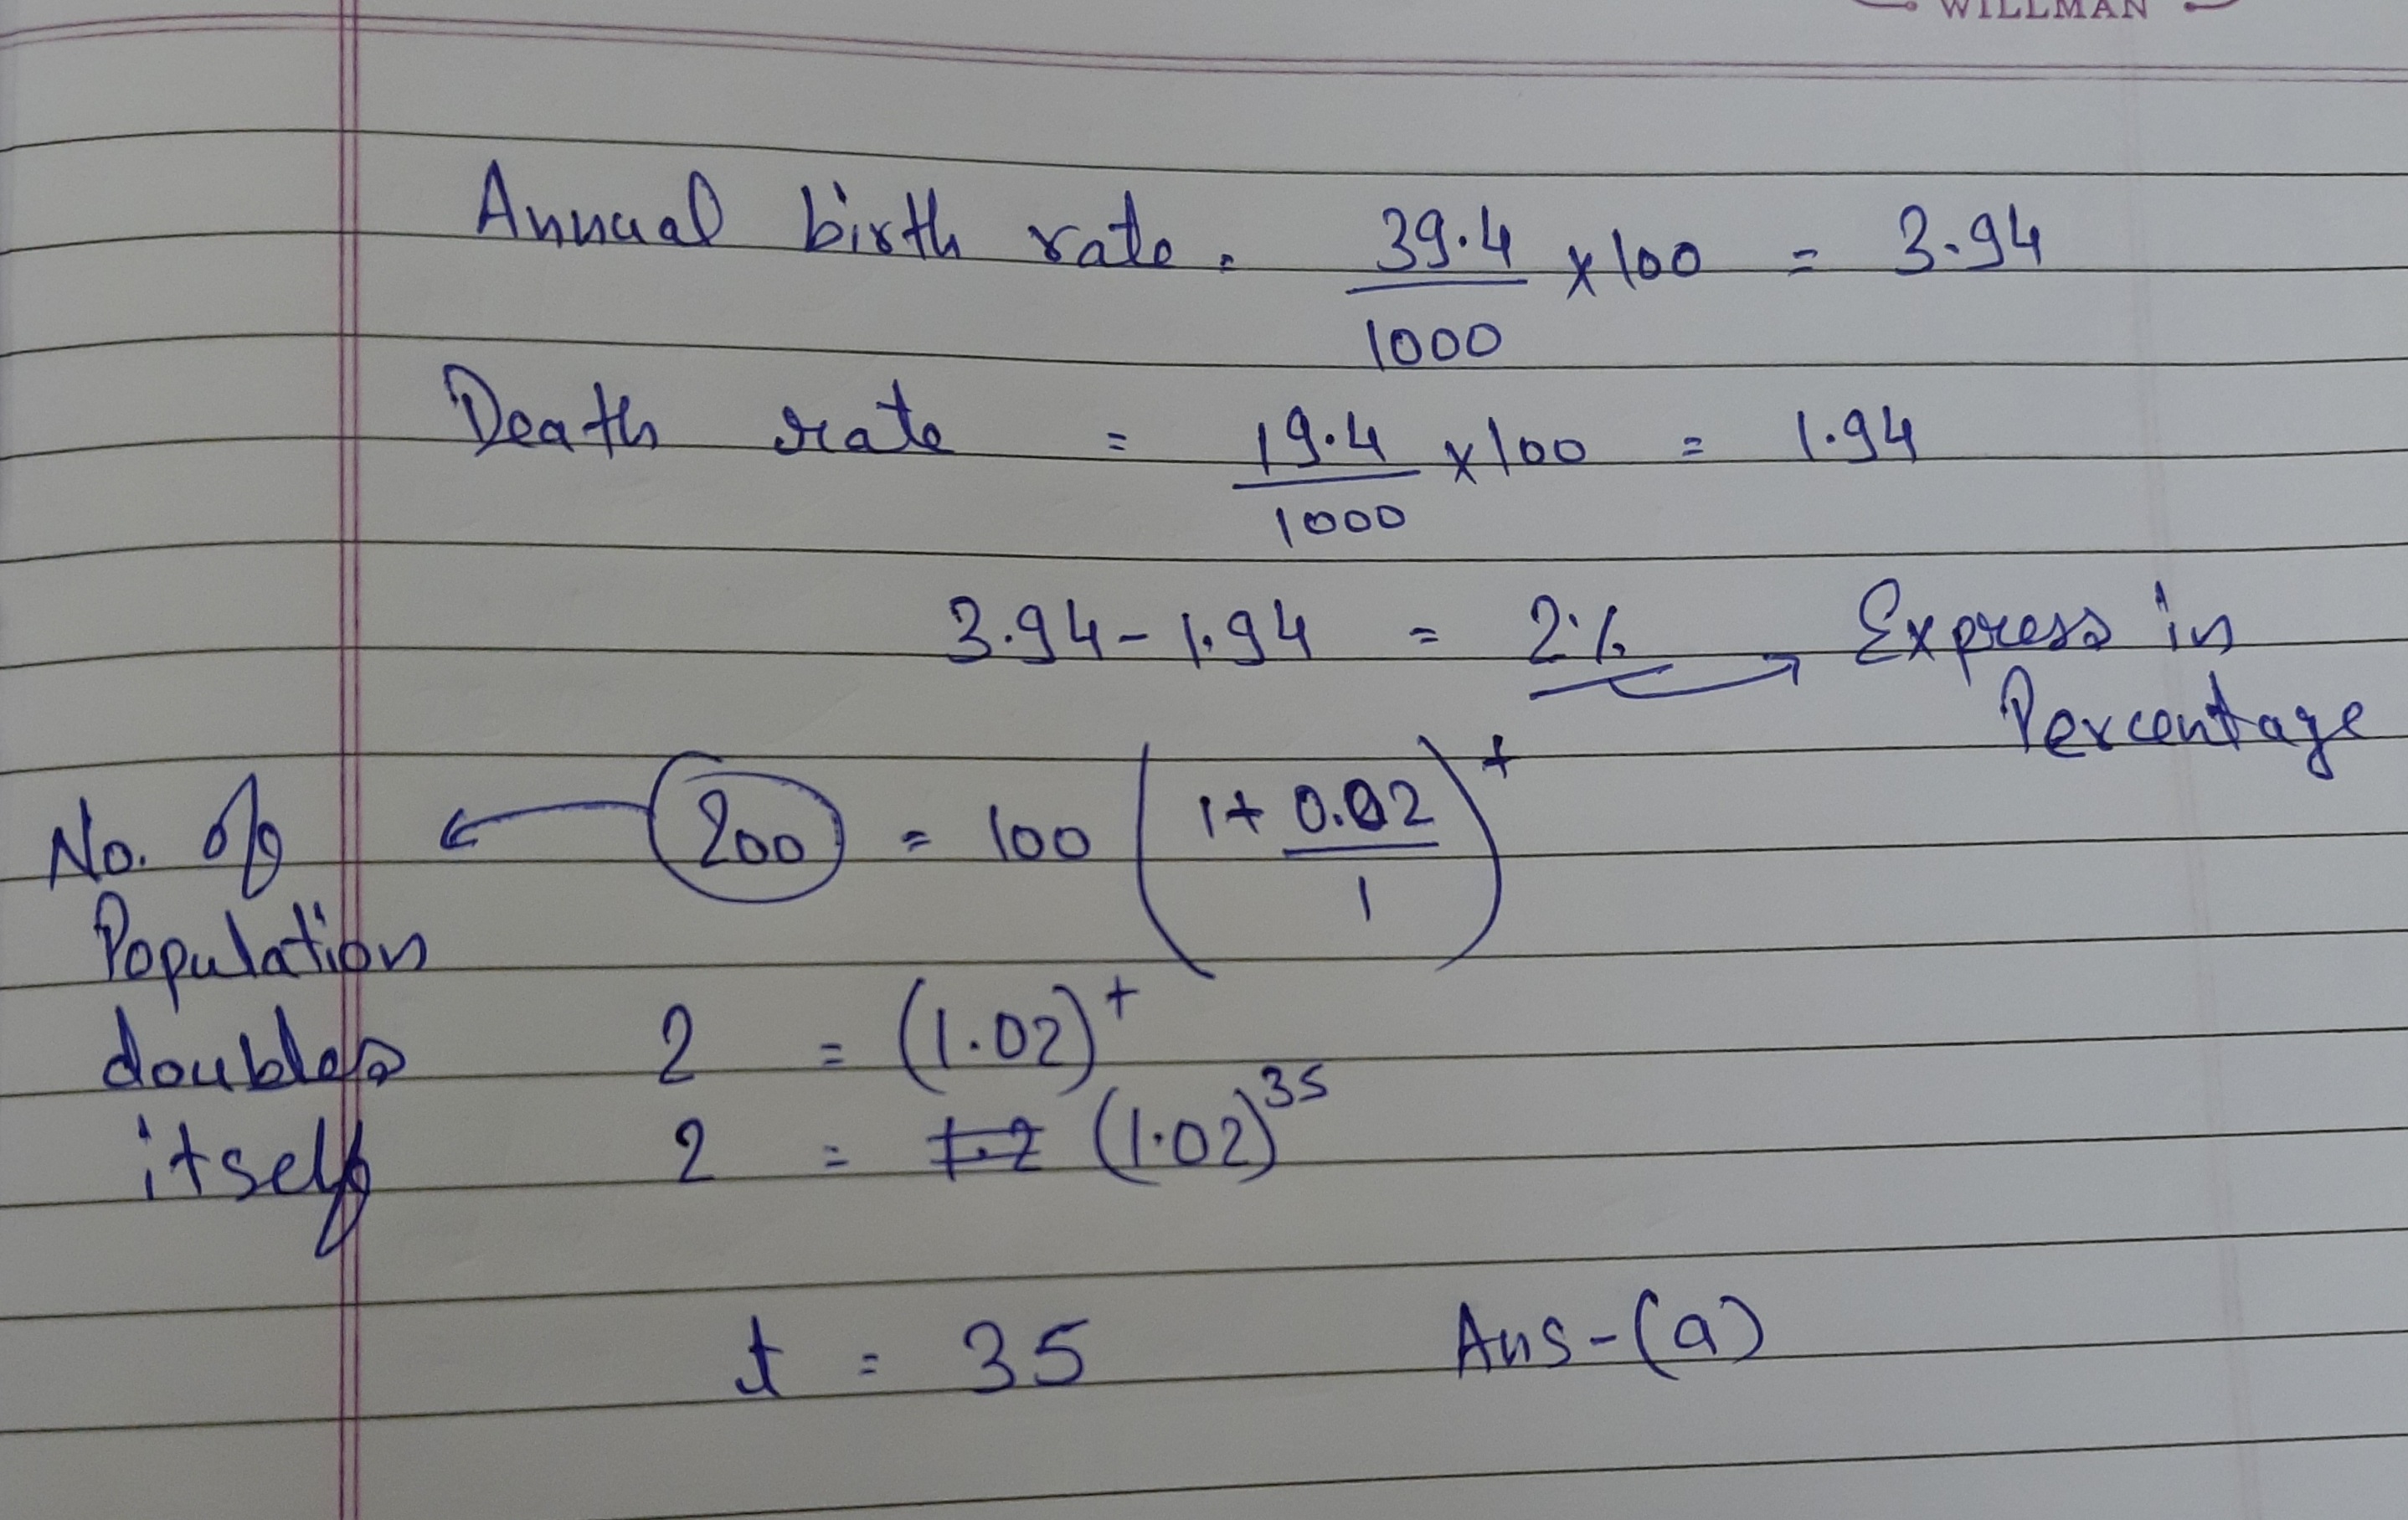 WILLMAN
Annual birth rate = 39.4/1000 x 100 = 3.94
Death rate = 19.4/1000 x 100 = 1.94
3.94 - 1.94 = 2% → Express in Percentage
No. of Population doubles itself ← 200 = 100 (1 + 0.02/1)^t
2 = (1.02)^t
2 = (1.02)^35
t = 35 Ans - (a)